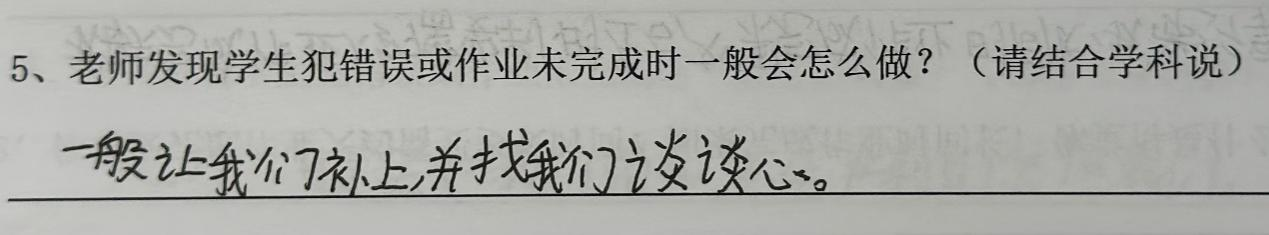 5、老师发现学生犯错误或作业未完成时一般会怎么做？（请结合学科说）
一般让我们补上,并找我们谈谈心。